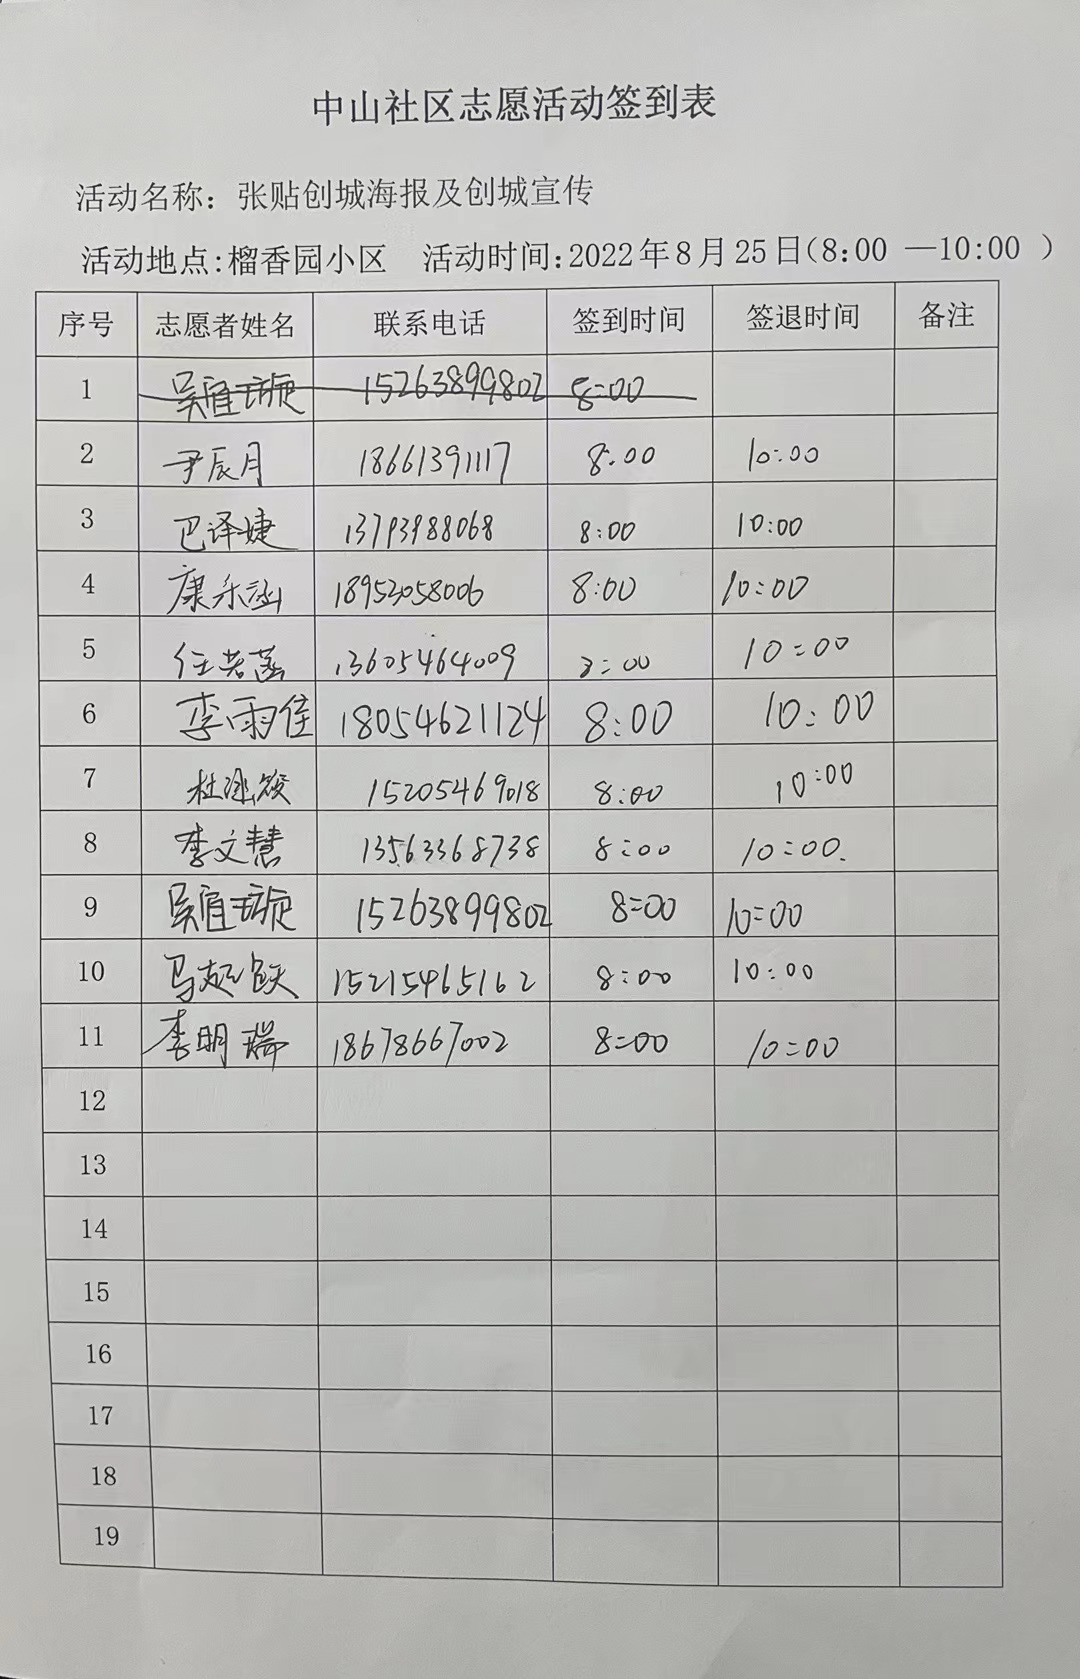 中山社区志愿活动签到表
活动名称：张贴创城海报及创城宣传
活动地点:榴香园小区 活动时间:2022年8月25日(8:00 —10:00 )
序号 志愿者姓名 联系电话 签到时间 签退时间 备注
1 吴宜璇 15263899802 8:00
2 尹辰月 18661391117 8:00 10:00
3 巴译婕 13793988068 8:00 10:00
4 康乐涵 18953058006 8:00 10:00
5 任若菡 13605464009 8:00 10:00
6 李雨佳 18054621124 8:00 10:00
7 杜 15205469018 8:00 10:00
8 李文慧 13563368738 8:00 10:00.
9 吴宜璇 15263899802 8:00 10:00
10 马起跃 15215465162 8:00 10:00
11 李明瑞 18678667002 8:00 10:00
12
13
14
15
16
17
18
19